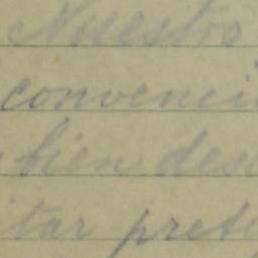 Nuestro
convenci
bien des
tar prete